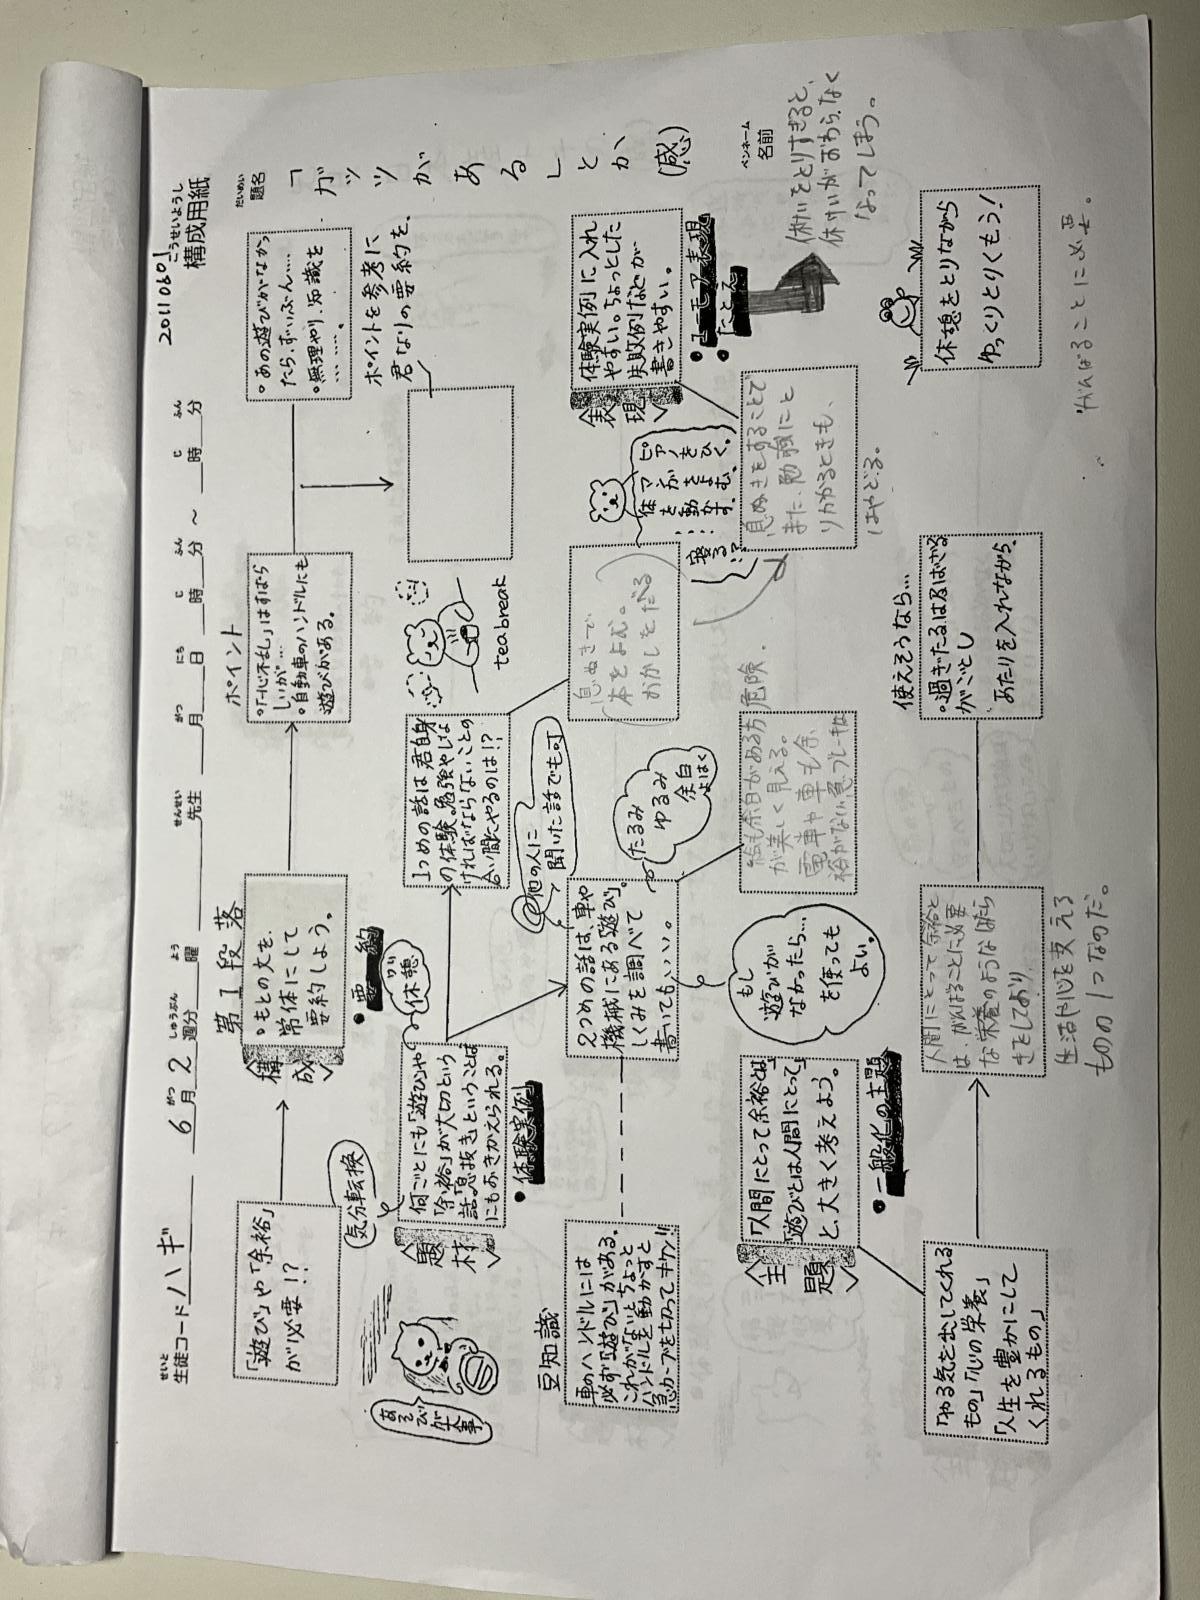 20110601
こうせいようし
構成用紙
せいと
生徒コード ハギ
6月2週分
がつ しゅうぶん
曜 よう
先生 せんせい
月 がつ 日 にち 時 じ 分 ふん ~ 時 じ 分 ふん
だいめい
題名
「ガッツがあることか(感)
ペンネーム
名前
「遊び」や「余裕」
が必要!?
第1段落
<構成>
・もとの文を、
常体にして
要約しよう。
・要約
ポイント
・「一心不乱」はすばら
しいが…
・自動車のハンドルにも
遊びがある。
・あの遊びがなかっ
たら、ずいぶん……
・無理やり、知識を
…………。
ポイントを参考に
君なりの要約を。
気分転換
あそびが大事
<題材>
何ごとにも「遊び」や
「余裕」が大切という
話。「息抜き」ということば
にもおきかえられる。
・体験実例
休憩
1つめの話は君自身
の体験。勉強やしな
ければならないことの
合い間にやるのは!?
@他の人に
聞いた話でも可
tea break
豆知識
車のハンドルには
必ず「遊び」がある。
これがないと、ちょっと
ハンドルを動かすと
急カーブを切ってキケン!!
2つめの話は、車や
機械にある「遊び」。
しくみを調べて
書いてもいい。
たるみ
ゆるみ
余白
よはく
息ぬきで
本をよむ。
おかしをたべる
ピアノをひく。
マンガをよむ。
体を動かす。
……
寝る!?
<表現>
体験実例に入れ
やすい。ちょっとした
失敗例などが
書きやすい。
・ユーモア表現
・たとえ
休けいをとりすぎると、
休けいがおわらなく
なってしまう。
<主題>
「人間にとって余裕とは」
「遊びとは人間にとって」
と、大きく考えよう。
・一般化の主題
もし
遊びが
なかったら…
を使っても
よい。
絵も余白がある方
が美しく見える。
電車や車も余
裕がない急ブレーキは
危険.
息ぬきをすることで
また、勉強にと
りかかるときも、
はやどる。
「やる気を出してくれる
もの」「心の栄養」
「人生を豊かにして
くれるもの」
人間にとって余裕と
は、がんばることに必要
な栄養のようなはたら
きをしており
生活や心を支える
ものの1つなのだ。
使えそうなら…
・過ぎたるは及ばざる
がごとし
あたりを入れながら、
休憩をとりながら
ゆっくりとりくもう!
がんばることに必要。